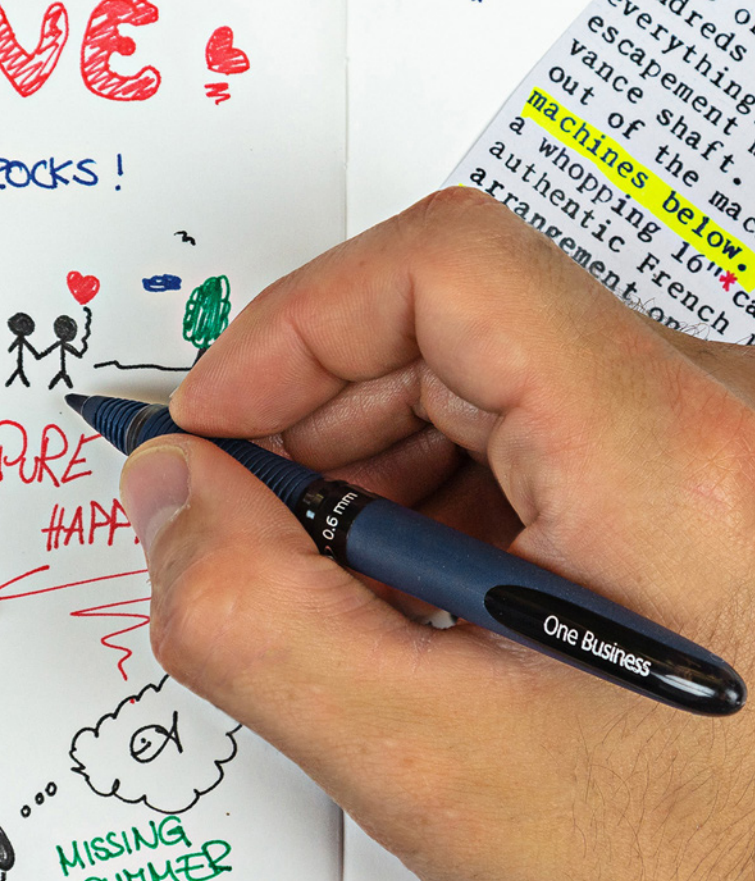 VE
ROCKS!
PURE
HAPP
MISSING
SUMMER
0.6 mm
One Business
hundreds
everything
escapement
vance shaft.
out of the mac
machines below.
a whopping 16"* ca
authentic French
arrangement on